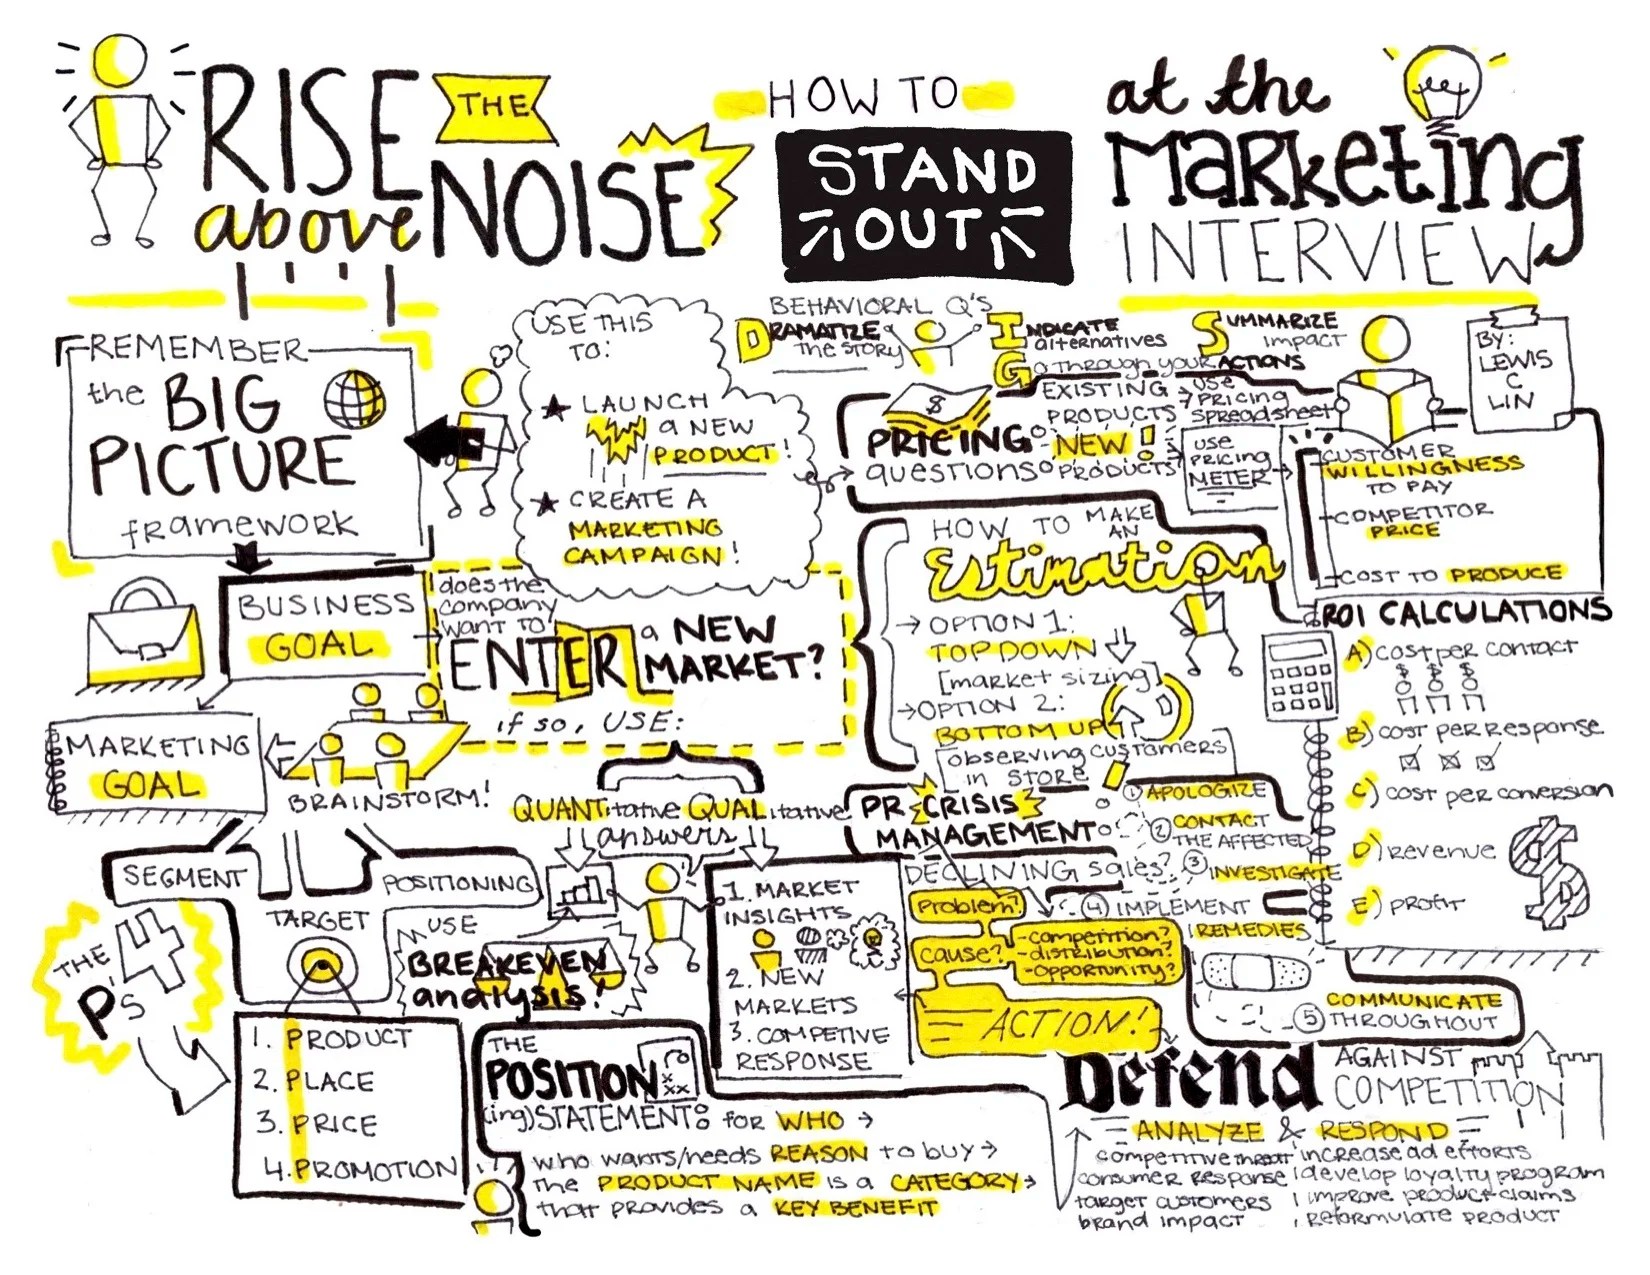 RISE
THE
above
NOISE
HOW TO
STAND
OUT
at the
MARKETING
INTERVIEW
REMEMBER
the BIG
PICTURE
framework
USE THIS
TO:
LAUNCH
a NEW
PRODUCT!
CREATE A
MARKETING
CAMPAIGN!
BEHAVIORAL Q'S
DRAMATIZE
the STORY
INDICATE
alternatives
GO through your ACTIONS
SUMMARIZE
impact
BY:
LEWIS
C
LIN
PRICING
questions
EXISTING
PRODUCTS
NEW!
PRODUCTS
use
PRICING
spreadsheet
use
PRICING
METER
CUSTOMER
WILLINGNESS
TO PAY
COMPETITOR
PRICE
COST TO PRODUCE
BUSINESS
GOAL
does the
company
want to
ENTER a NEW
MARKET?
if so, USE:
QUANTitative QUALitative
answers
HOW TO MAKE
AN
Estimation
OPTION 1:
TOP DOWN
[market sizing]
OPTION 2:
BOTTOM UP
observing customers
in STORE
ROI CALCULATIONS
A) cost per contact
$ $ $
B) cost per response
C) cost per conversion
D) revenue
E) profit
MARKETING
GOAL
BRAINSTORM!
SEGMENT
TARGET
POSITIONING
THE
4
P's
1. PRODUCT
2. PLACE
3. PRICE
4. PROMOTION
USE
BREAKEVEN
analysis!
1. MARKET
INSIGHTS
2. NEW
MARKETS
3. COMPETIVE
RESPONSE
PR CRISIS
MANAGEMENT
1 APOLOGIZE
2 CONTACT
THE AFFECTED
3 INVESTIGATE
4 IMPLEMENT
REMEDIES
5 COMMUNICATE
THROUGHOUT
DECLINING sales?
Problem?
cause?
-competition?
-distribution?
-opportunity?
ACTION!
THE
POSITION
(ing) STATEMENT: for WHO
who wants/needs REASON to buy
the PRODUCT NAME is a CATEGORY
that provides a KEY BENEFIT
Defend AGAINST
COMPETITION
ANALYZE & RESPOND
competitive threat
consumer response
target customers
brand impact
increase ad efforts
develop loyalty program
improve product claims
reformulate product